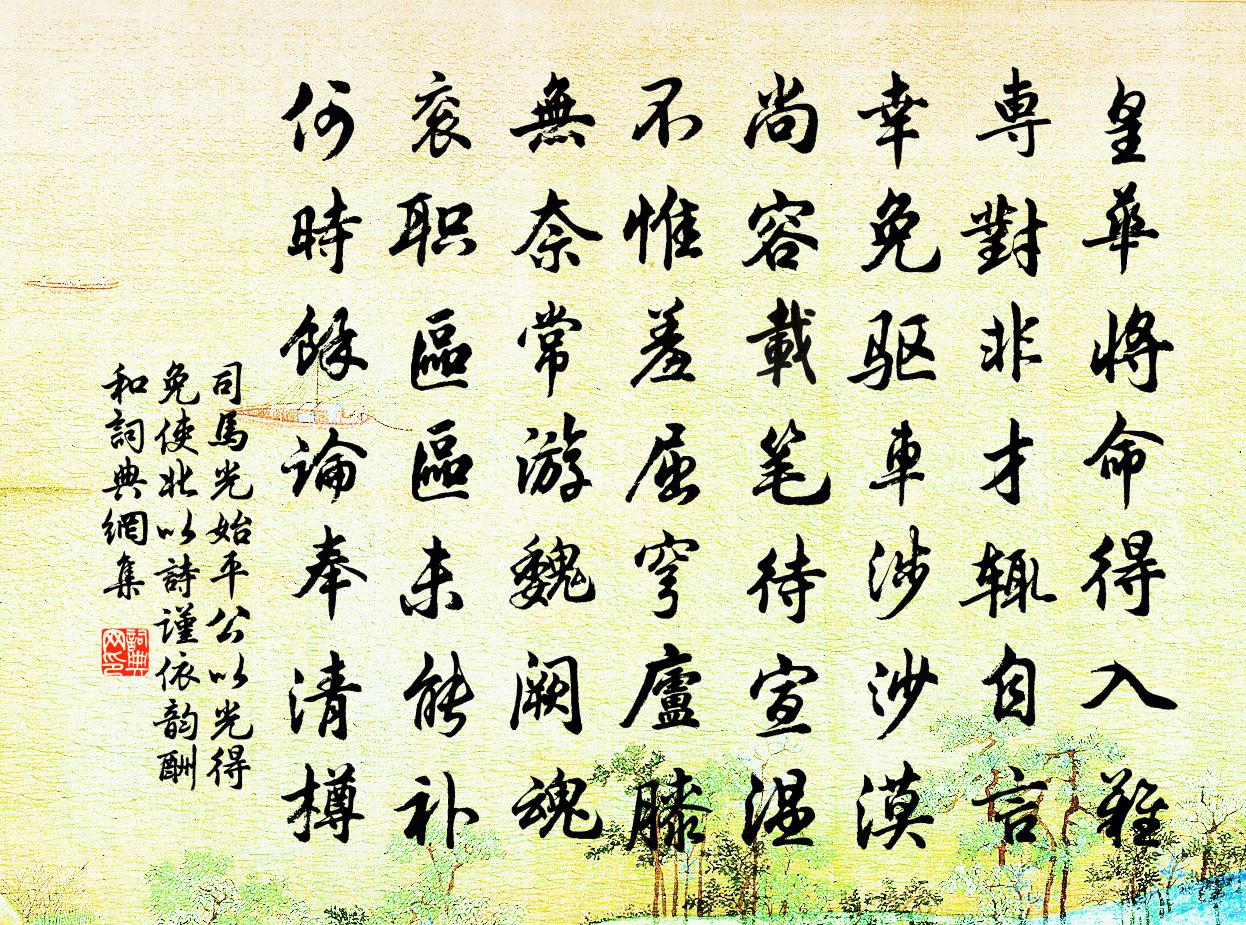 皇華將命得入難
専對非才輒自言
幸免驱車涉沙漠
尚容載笔待宣温
不惟羞屈穹廬膝
無奈常游魏阙魂
衮职區區未能补
何時餘論奉清樽
司馬光始平公以光得
免使北以詩谨依韵酬
和詞典網集
詞典网印